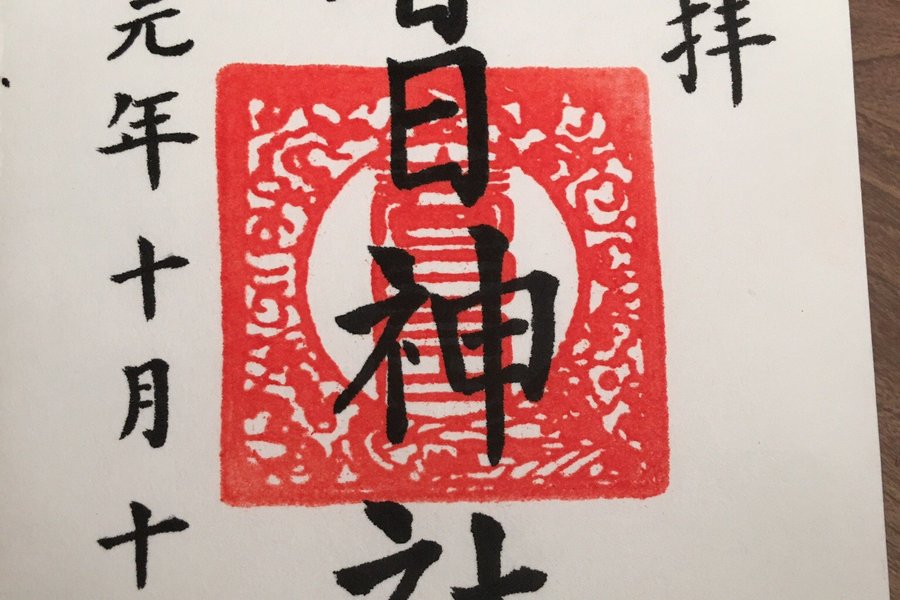 拝
春日神社
元年十月十